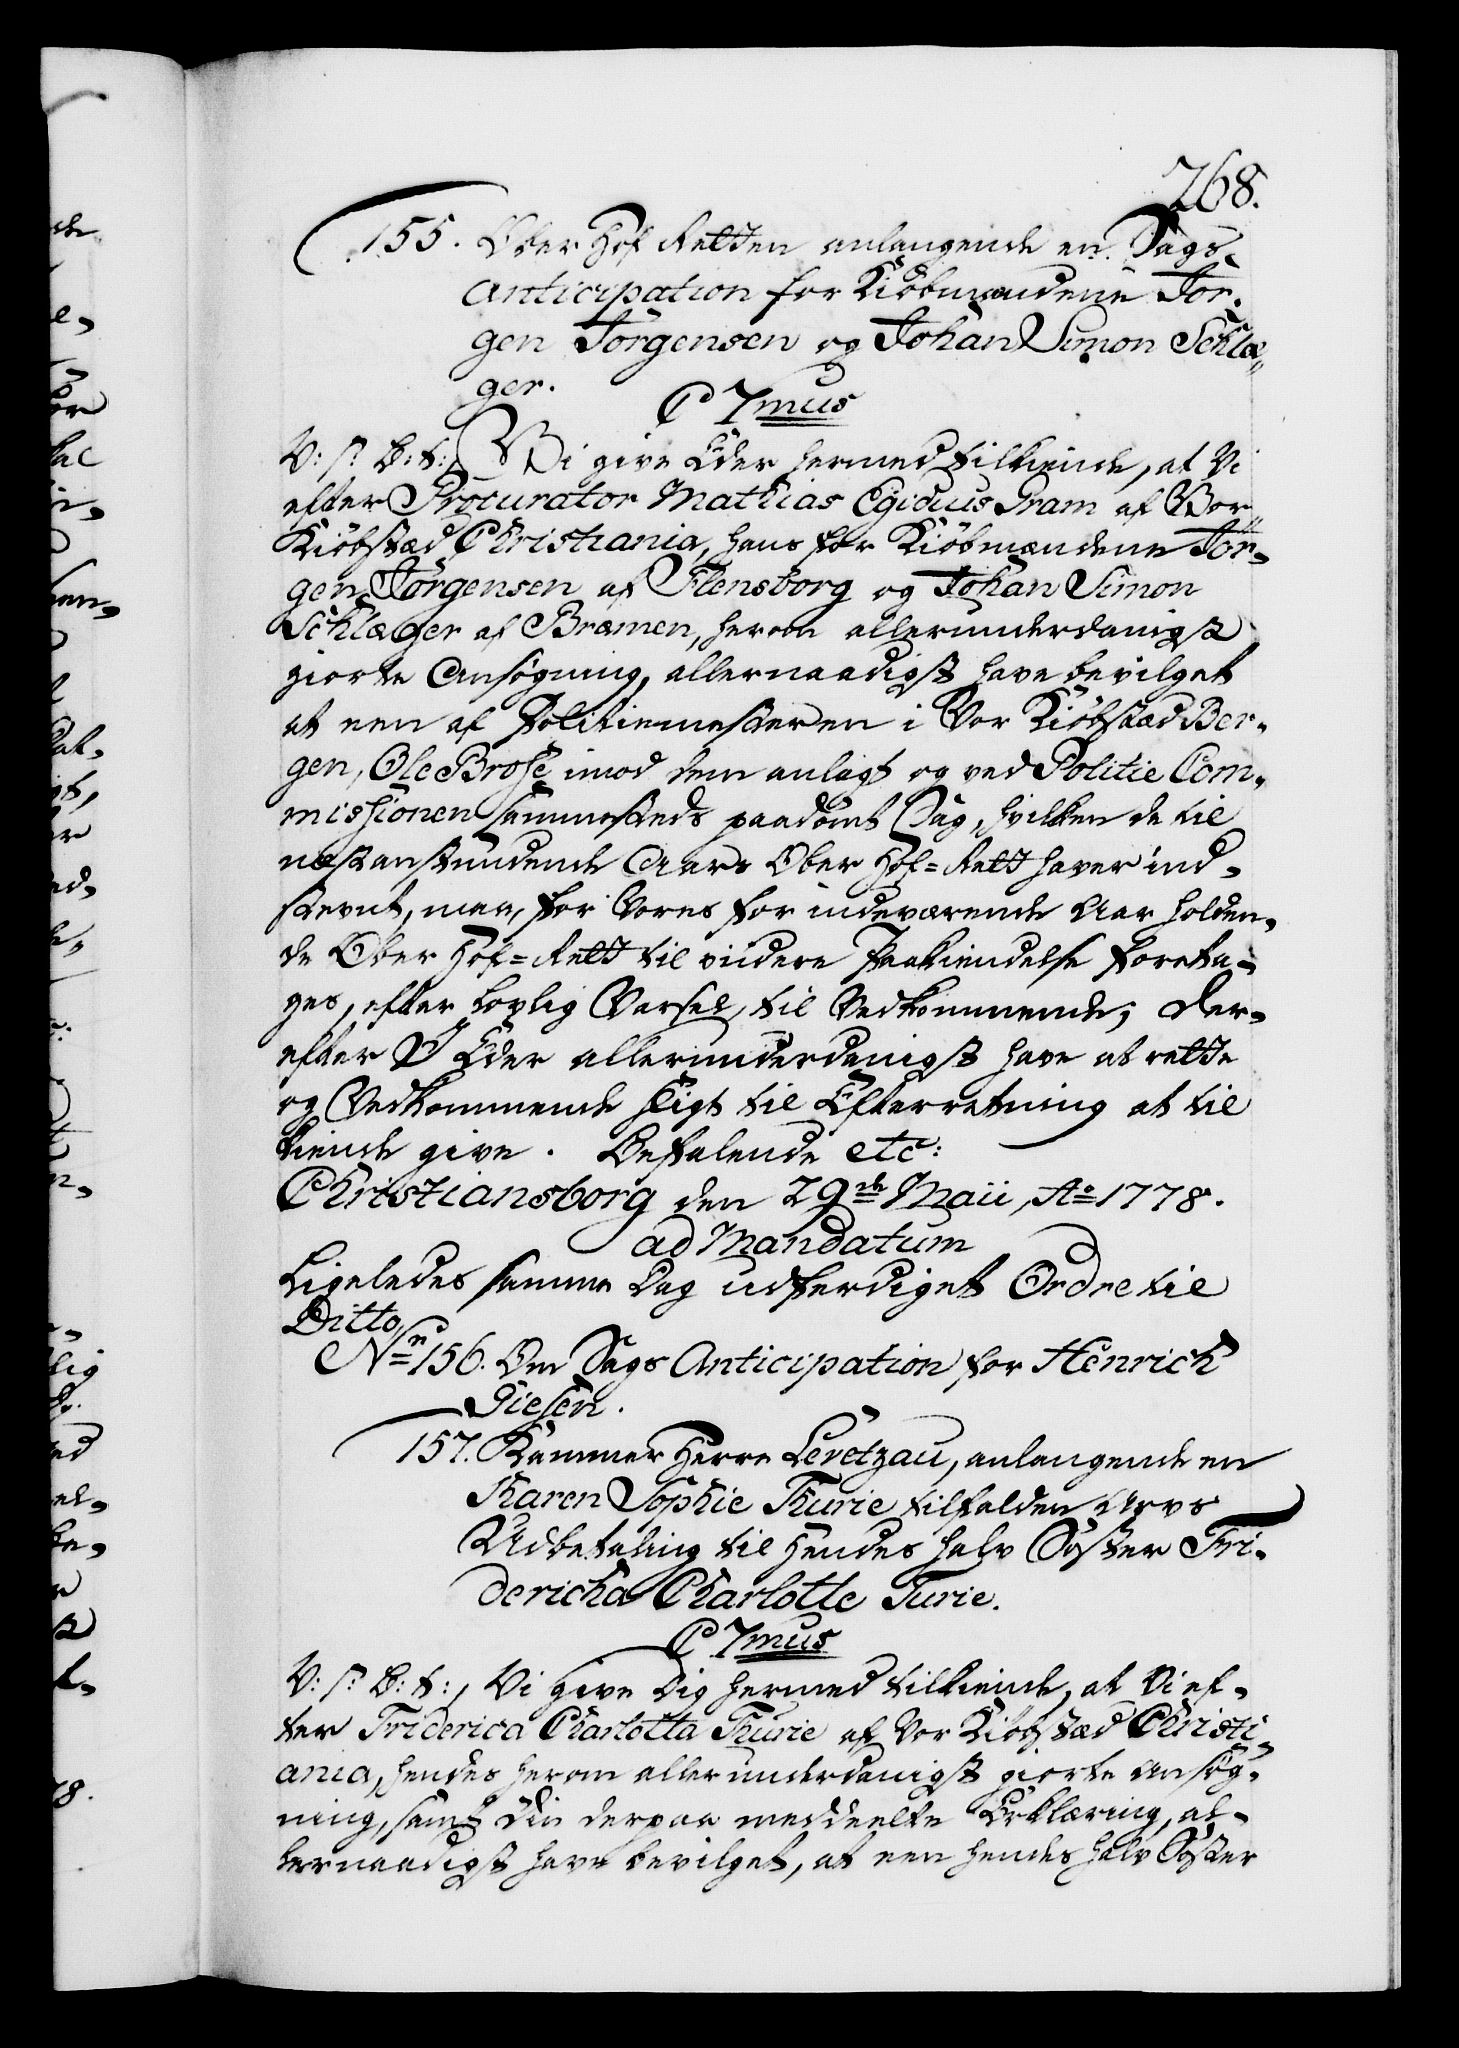 268.
155. Ober Hof Retten anlangende en Sags-
Anticipation for Kiöbmændene Jör-
gen Jörgensen og Johan Simon Schlæ-
ger.
C 7mus
V: S: B: t:, Vi give Eder hermed tilkiende, at Vi
efter Procurator Mathias Egidius Gram af Vor
Kiöbstæd Christiania, hans for Kiöbmændene Jör-
gen Jörgensen af Flensborg og Johan Simon
Schlæger af Bræmen, herom allerunderdanigst
giorte Ansögning, allernaadigst have bevilget
at een af Politiemesteren i Vor Kiöbstæd Ber-
gen, Ole Brose imod dem anlagt og ved Politie Com-
missionen sammesteds paadömt Sag, hvilken de til
næstanstundende Aars Ober Hof-Rett haver ind-
stevnt, maae, for Vores for indeværende Aar holden-
de Ober Hof-Rett til viidere Paakiendelse foreta-
ges, efter lovlig Varsel, til Vedkommende; Der-
efter I Eder allerunderdanigst have at rette
og Vedkommende sligt til Efterretning at til
kiende give. Befalende etc:
Christiansborg den 29de Maii, Ao 1778.
ad Mandatum
Ligeledes samme Dag udferdiget Ordre til
Ditto
Nn 156. Om Sags Anticipation for Henrich
Giesen.
157. Kammer Herre Levetzau, anlangende en
Karen Sophie Thurie tilfalden Arvs
Udbetaling til Hendes halv Söster Fri-
dericha Charlotte Turie.
C 7mus
V: S: B: t:, Vi give Dig hermed tilkiende, at Vi ef-
ter Friderica Charlotta Thurie af Vor Kiöbstæd Christi-
ania, hendes herom allerunderdanigst giorte Ansög-
ning, samt Din derpaa meddeelte Erklæring, al-
lernaadigst have bevilget, at een hendes halv Söster